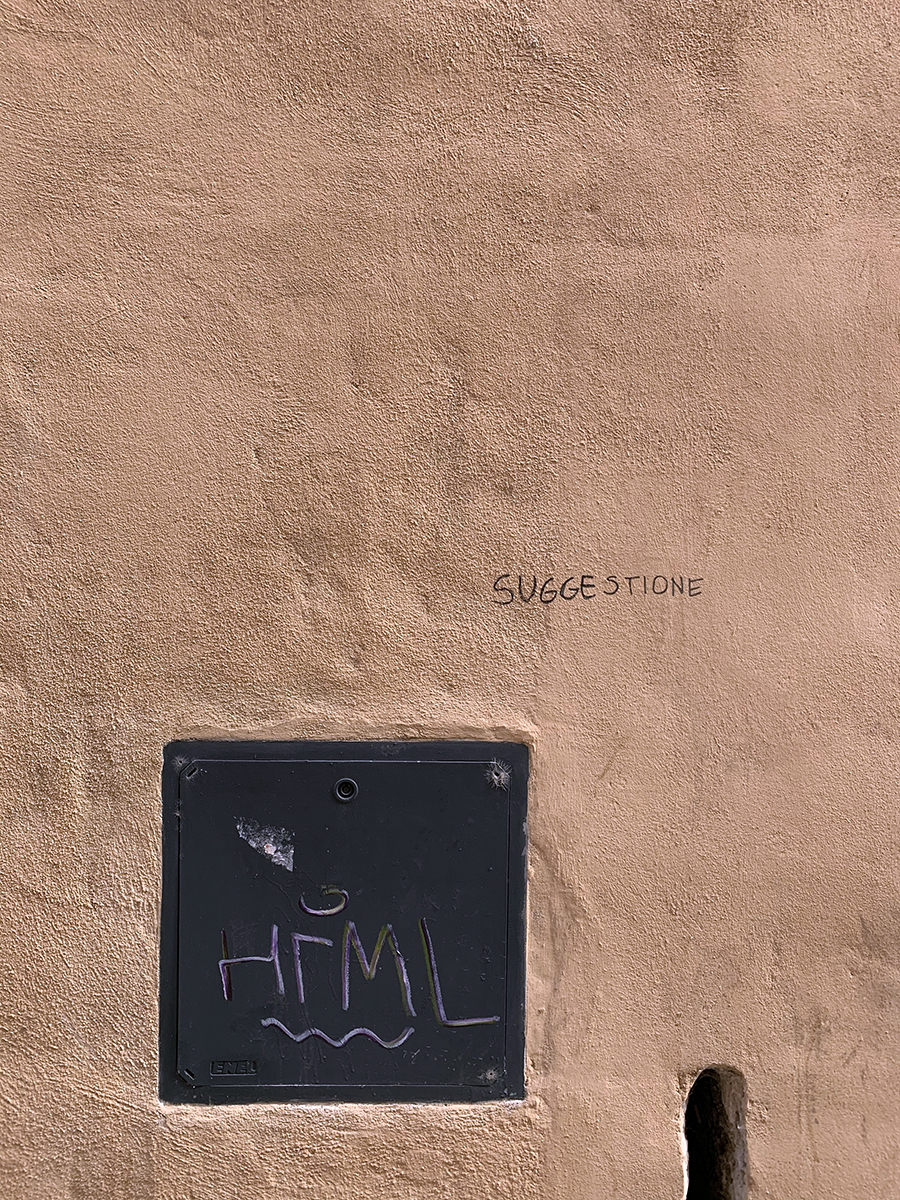 SUGGESTIONE
HTML
ENEL